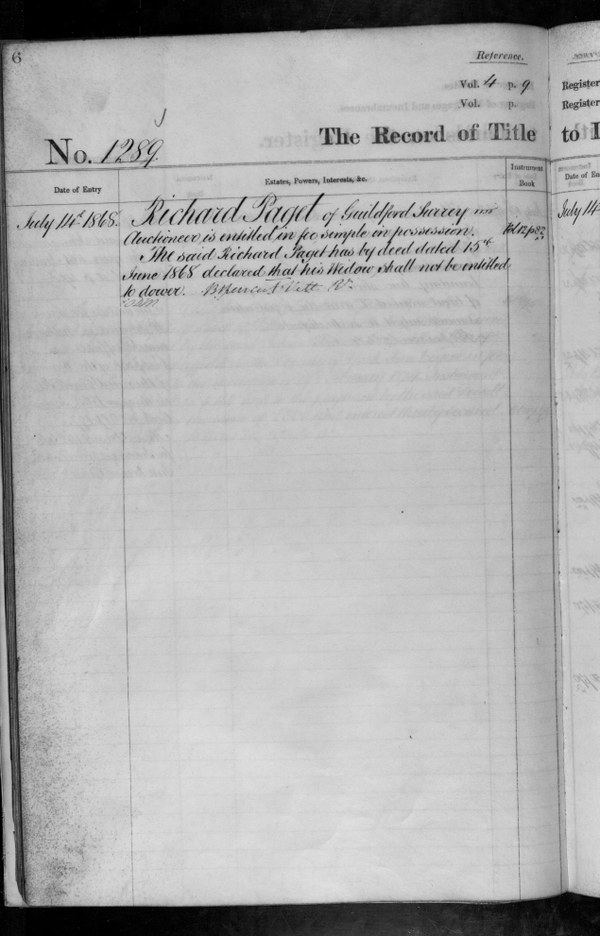 6
Reference.
Vol. 4 p. 9
Vol. p.
No. 1289.
The Record of Title
to
Register
Register
Date of Entry
Estates, Powers, Interests, &c.
Instrument
Book
July 14th 1868.
Richard Paget of Guildford Surrey
Auctioneer is entitled in fee simple in possession.
The said Richard Paget has by deed dated 15th
June 1868 declared that his Widow shall not be entitled
to dower.
July 14